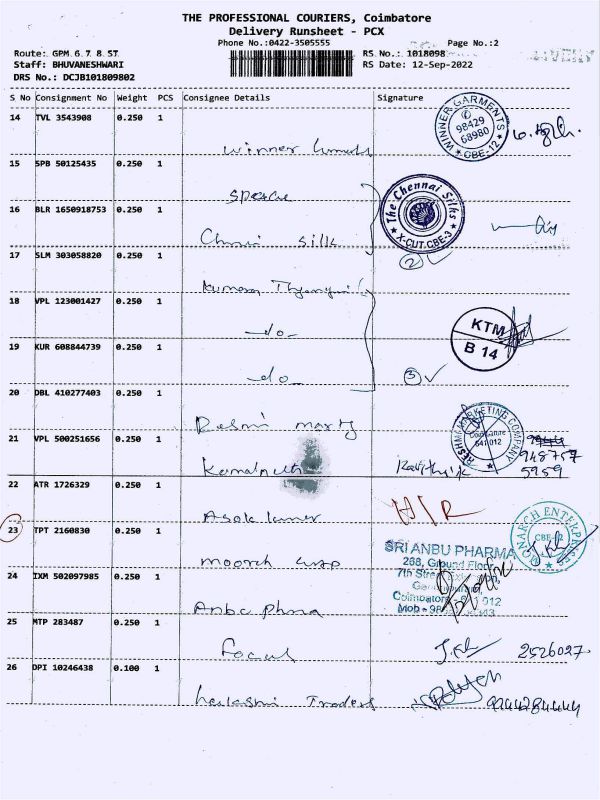 THE PROFESSIONAL COURIERS, Coimbatore
Delivery Runsheet - PCX
Phone No.:0422-3505555
Page No.:2
Route: GPM. 6. 7. 8. ST.
RS No.: 1018098
Staff: BHUVANESHWARI
RS Date: 12-Sep-2022
DRS No.: DCJB101809802
S No Consignment No Weight PCS Consignee Details Signature
14 TVL 3543908 0.250 1
WINNER GARMENTS
98429
68980
CBE-12
winner
15 SPB 50125435 0.250 1
Space
The Chennai Silks
X-CUT.CBE-3
16 BLR 1650918753 0.250 1
Chennai Silk
2
17 SLM 303058820 0.250 1
18 VPL 123001427 0.250 1
-do-
KTM
B 14
19 KUR 608844739 0.250 1
-do-
3
20 DBL 410277403 0.250 1
RESHMI MARKETING COMPANY
Coimbatore
641 012
21 VPL 500251656 0.250 1
948757
5959
22 ATR 1726329 0.250 1
Asok
H/R
23 TPT 2160830 0.250 1
MONARCH ENTERPRISES
CBE-12
SRI ANBU PHARMA
268, Ground Floor
7th Street
24 IXM 502097985 0.250 1
Coimbatore
012
Anbu Pharma
25 MTP 283487 0.250 1
Focus
2526027
26 DPI 10246438 0.100 1
Traders
9244284444